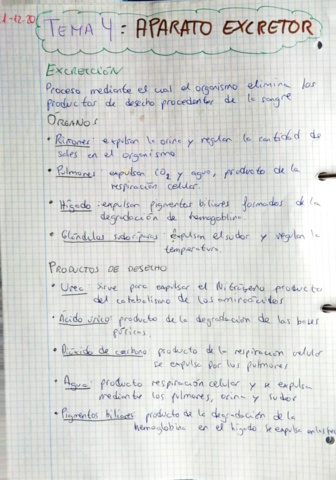 1-12-20
TEMA 4: APARATO EXCRETOR
EXCRECIÓN
Proceso mediante el cual el organismo elimina los
productos de desecho procedentes de la sangre
ÓRGANOS
• Riñones: expulsan la orina y regulan la cantidad de
sales en el organismo
• Pulmones: expulsan CO2 y agua, producto de la
respiración celular.
• Hígado: expulsan pigmentos biliares formados de la
degradación de hemoglobina.
• Glándulas sudoríparas: expulsan el sudor y regulan la
temperatura.
PRODUCTOS DE DESECHO
• Urea: sirve para expulsar el Nitrógeno producto
del catabolismo de los aminoácidos
• Ácido úrico: producto de la degradación de las bases
púricas.
• Dióxido de carbono: producto de la respiración celular
se expulsa por los pulmones
• Agua: producto respiración celular y se expulsa
mediante los pulmones, orina y sudor
• Pigmentos biliares: producto de la degradación de la
hemoglobina en el hígado se expulsa